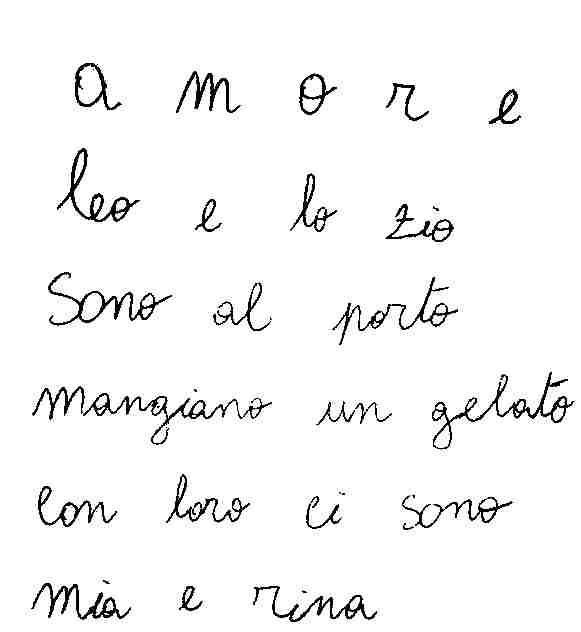 a m o r e
leo e lo zio
Sono al porto
mangiano un gelato
con loro ci sono
mia e rina